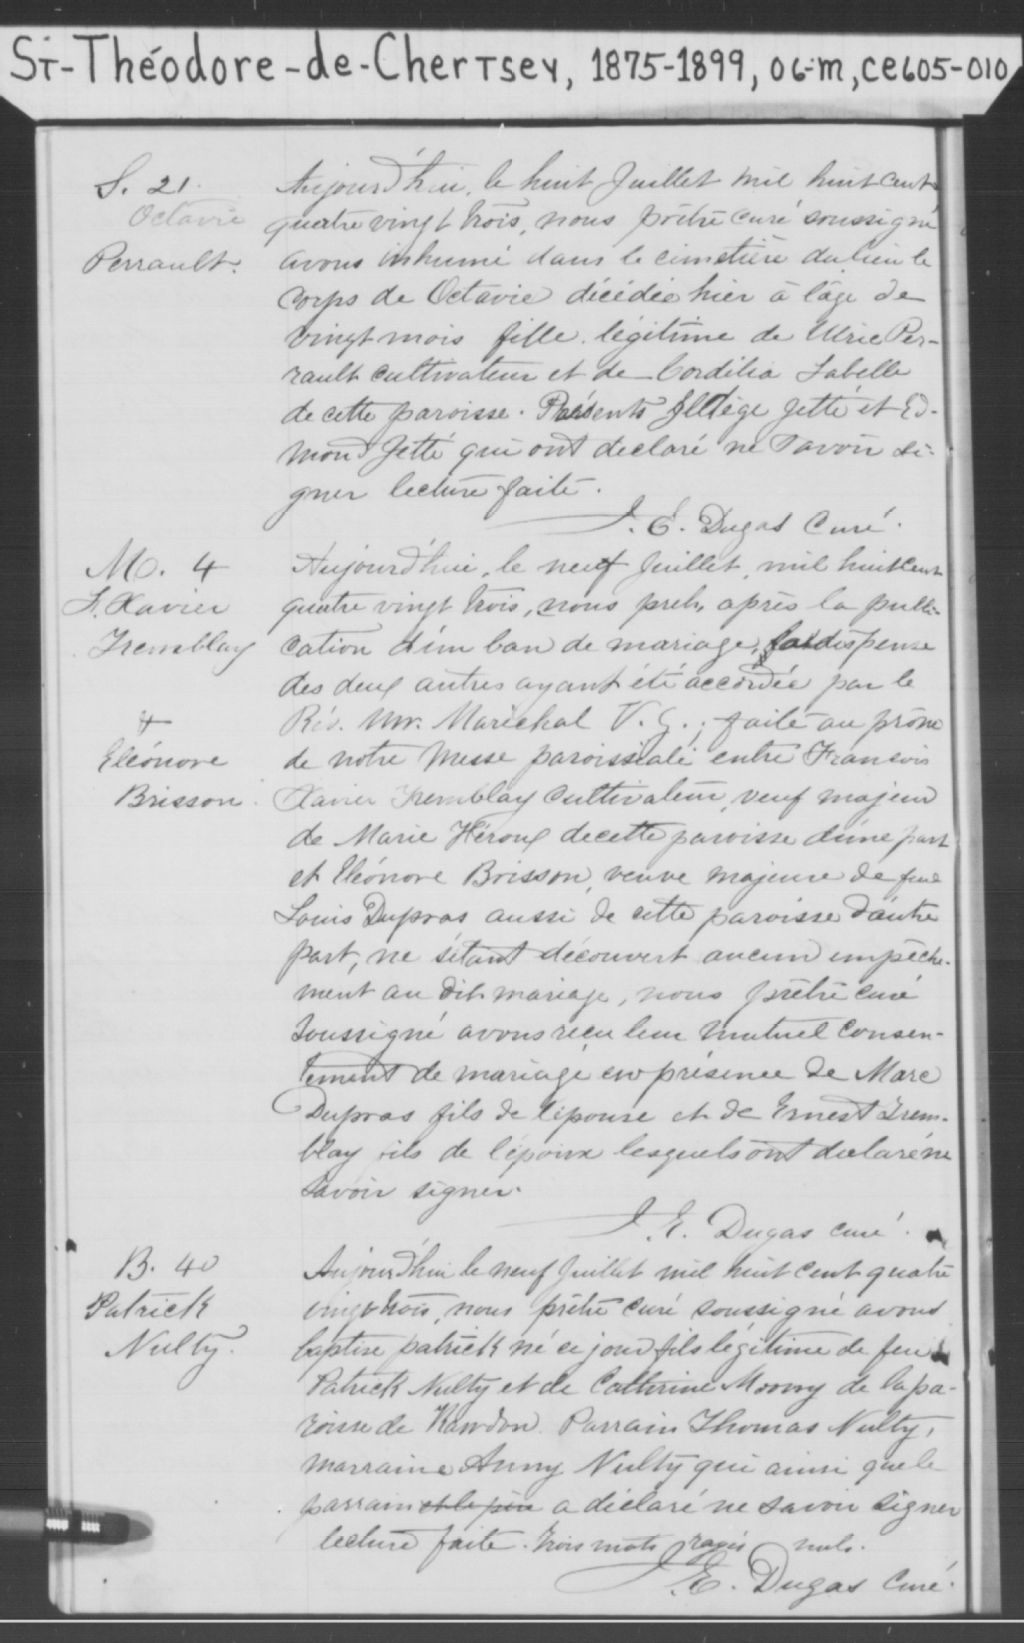 ST-Théodore-de-Chertsey, 1875-1899, 06-m, CE605-010
S. 21.
Octavie
Perrault.
Aujourd'hui, le huit Juillet mil huit cent
quatre vingt trois, nous prêtre curé soussigné
avons inhumé dans le cimetière du lieu le
corps de Octavie décédée hier à l'âge de
vingt mois fille légitime de Ulric Per-
rault cultivateur et de Cordélia Labelle
de cette paroisse. Présents Jetté et Ed-
mond Jetté qui ont déclaré ne savoir si-
gner lecture faite.
J. E. Dugas Curé.
M. 4
F. Xavier
Tremblay
+
Eléonore
Brisson.
Aujourd'hui, le neuf Juillet, mil huit cent
quatre vingt trois, nous après la publi-
cation d'un ban de mariage, la dispense
des deux autres ayant été accordée par le
Rév. Mr. Maréchal V. G., faite au prône
de notre Messe paroissiale entre Francois
Xavier Tremblay Cultivateur, veuf majeur
de Marie Héroux de cette paroisse d'une part
et Eléonore Brisson, veuve majeure de feu
Louis Dupras aussi de cette paroisse d'autre
part, ne s'étant découvert aucun empêche-
ment au dit mariage, nous prêtre curé
soussigné avons reçu leur mutuel consen-
tement de mariage en présence de Marc
Dupras fils de l'épouse et de Ernest Trem-
blay fils de l'époux lesquels ont déclaré ne
savoir signer.
J. E. Dugas curé.
B. 40
Patrick
Nulty.
Aujourd'hui le neuf Juillet mil huit cent quatre
vingt trois, nous prêtre curé soussigné avons
baptisé patrick né ce jour fils légitime de feu
Patrick Nulty et de Catherine Moony de la pa-
roisse de Rawdon. Parrain Thomas Nulty,
marraine Anny Nulty qui ainsi que le
parrain et le père a déclaré ne savoir signer
lecture faite. trois mots rayés nuls.
J. E. Dugas Curé.